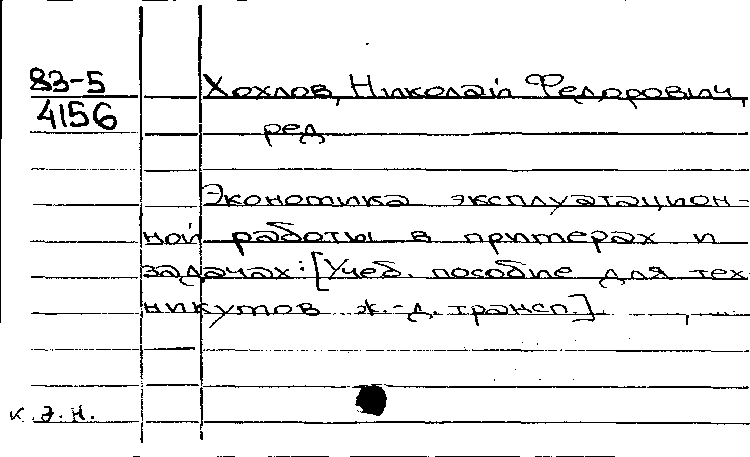 83-5
4156
Хохлов, Николай Федорович,
ред.
Экономика эксплуатацион-
ной работы в примерах и
задачах: [Учеб. пособие для тех-
никумов ж.-д. трансп.]
к.э.н.